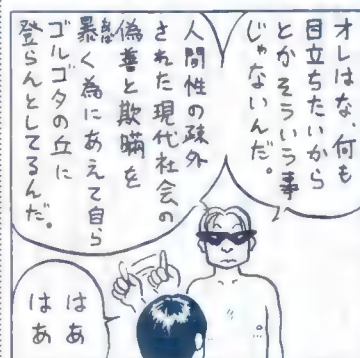 オレはな、何も
目立ちたいから
とかそういう事
じゃないんだ。
人間性の疎外
された現代社会の
偽善と欺瞞を
暴く為にあえて自ら
ゴルゴタの丘に
登らんとしてるんだ。
はあ
はあ